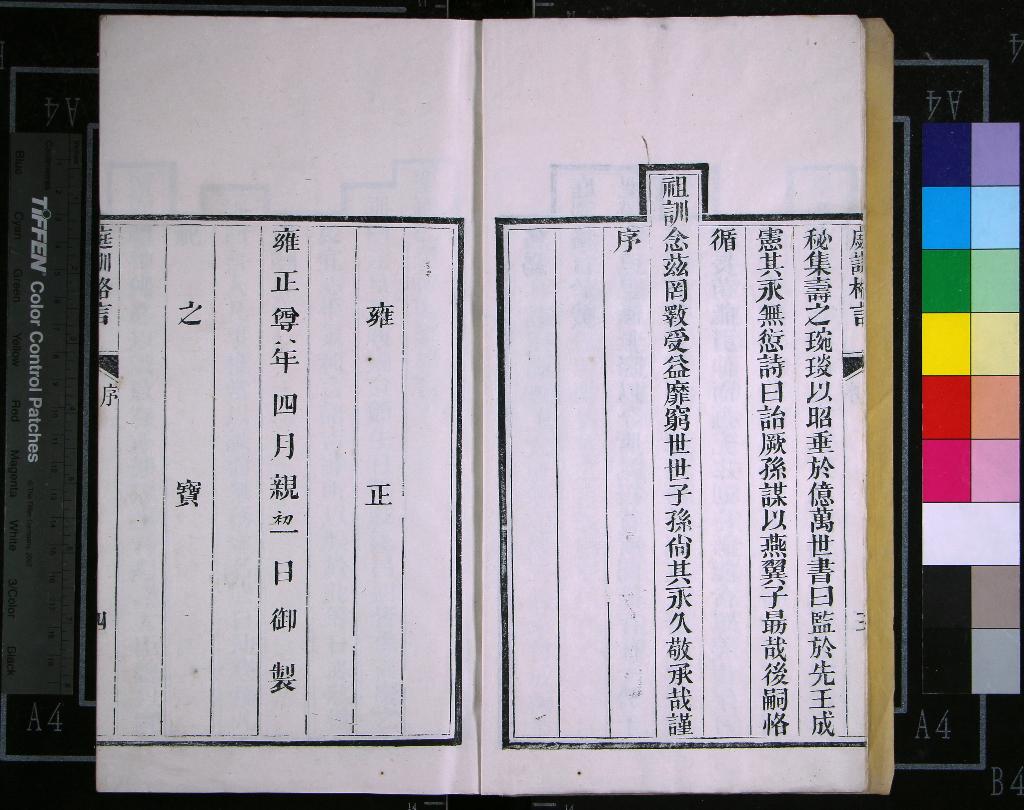 秘集壽之琬琰以昭垂於億萬世書曰監於先王成
憲其永無愆詩曰詒厥孫謀以燕翼子勗哉後嗣恪
循
祖訓念茲罔斁受益靡窮世世子孫尙其永久敬承哉謹
序
雍正
雍正八年四月初一日御親製
之寶
庭訓格言
序
四
TIFFEN Color Control Patches
Blue Cyan Green Yellow Red Magenta White 3/Color Black
A4
A4
A4
A4
B4